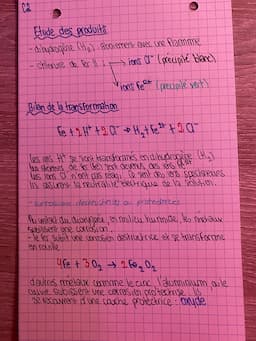 C2
Etude des produits
- dihydrogène (H₂), avec une flamme
- chlorure de fer II : → ions Cl⁻ (précipité blanc)
→ ions Fe²⁺ (précipité vert)
Bilan de la transformation
Fe + 2H⁺ + 2Cl⁻ → H₂ + Fe²⁺ + 2Cl⁻
les ions H⁺ se sont transformés en dihydrogène (H₂)
les atomes de fer des ions
les ions Cl⁻ n'ont pas réagi, ce sont des ions spectateurs
ils assurent la neutralité électrique de la solution.
- corrosion destructrice ou protectrice
Au contact du dioxygène, en milieu humide, les métaux
subissent une corrosion.
- le fer subit une corrosion destructrice et se transforme
en rouille
4Fe + 3O₂ → 2Fe₂O₃
d'autres métaux comme le zinc, l'aluminium ou le
cuivre subissent une corrosion protectrice. Ils
se recouvrent d'une couche protectrice : oxyde